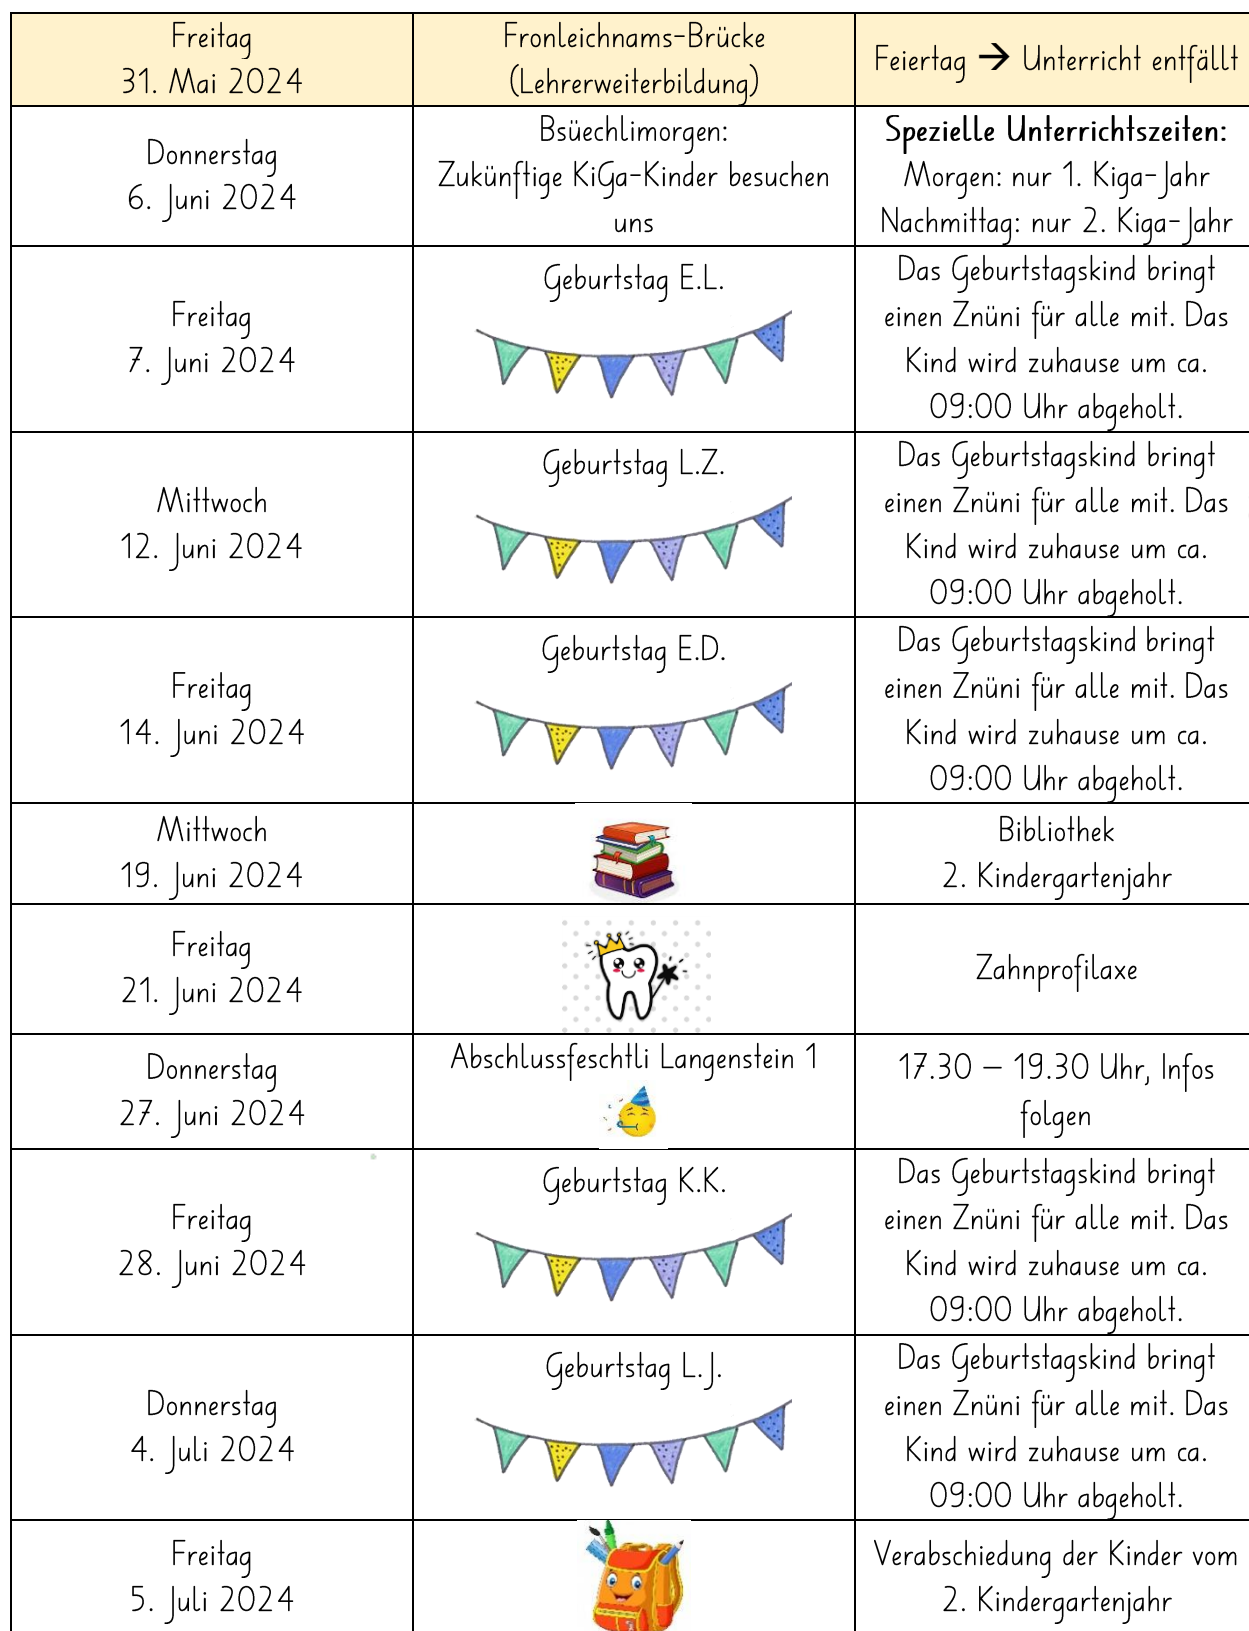 Freitag
31. Mai 2024
Fronleichnams-Brücke
(Lehrerweiterbildung)
Feiertag → Unterricht entfällt
Donnerstag
6. Juni 2024
Bsüechlimorgen:
Zukünftige KiGa-Kinder besuchen
uns
Spezielle Unterrichtszeiten:
Morgen: nur 1. Kiga-Jahr
Nachmittag: nur 2. Kiga-Jahr
Freitag
7. Juni 2024
Geburtstag E.L.
Das Geburtstagskind bringt
einen Znüni für alle mit. Das
Kind wird zuhause um ca.
09:00 Uhr abgeholt.
Mittwoch
12. Juni 2024
Geburtstag L.Z.
Das Geburtstagskind bringt
einen Znüni für alle mit. Das
Kind wird zuhause um ca.
09:00 Uhr abgeholt.
Freitag
14. Juni 2024
Geburtstag E.D.
Das Geburtstagskind bringt
einen Znüni für alle mit. Das
Kind wird zuhause um ca.
09:00 Uhr abgeholt.
Mittwoch
19. Juni 2024
Bibliothek
2. Kindergartenjahr
Freitag
21. Juni 2024
Zahnprofilaxe
Donnerstag
27. Juni 2024
Abschlussfeschtli Langenstein 1
17.30 – 19.30 Uhr, Infos
folgen
Freitag
28. Juni 2024
Geburtstag K.K.
Das Geburtstagskind bringt
einen Znüni für alle mit. Das
Kind wird zuhause um ca.
09:00 Uhr abgeholt.
Donnerstag
4. Juli 2024
Geburtstag L.J.
Das Geburtstagskind bringt
einen Znüni für alle mit. Das
Kind wird zuhause um ca.
09:00 Uhr abgeholt.
Freitag
5. Juli 2024
Verabschiedung der Kinder vom
2. Kindergartenjahr